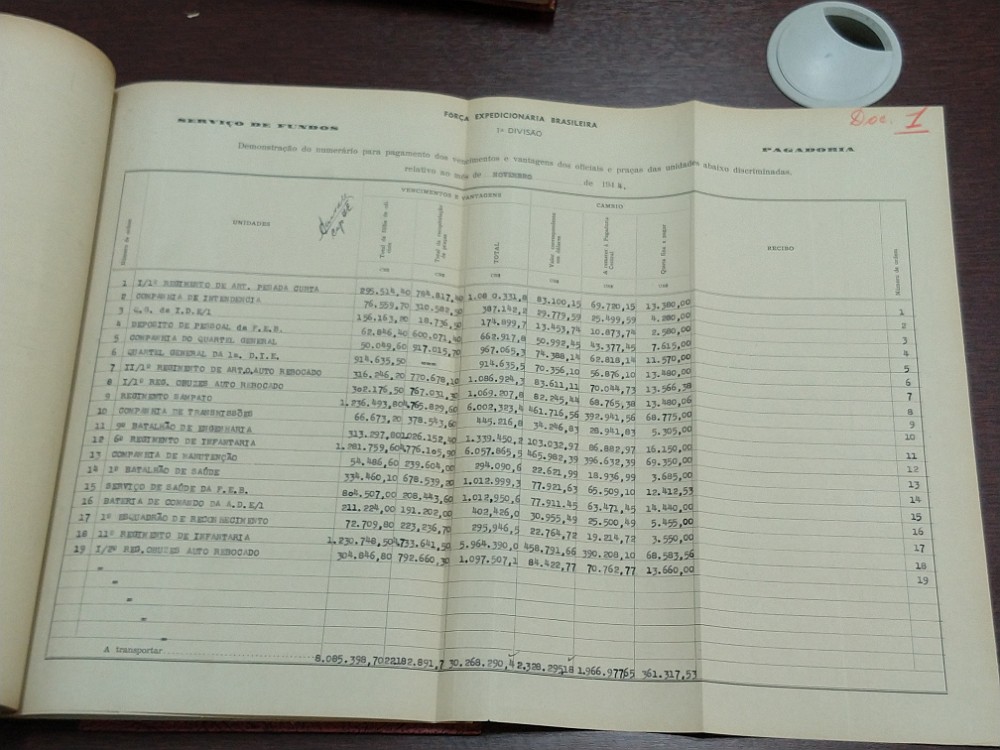 Doc. 1
FORÇA EXPEDICIONÁRIA BRASILEIRA
SERVIÇO DE FUNDOS
1ª DIVISÃO
PAGADORIA
Demonstração do numerário para pagamento dos vencimentos e vantagens dos oficiais e praças das unidades abaixo discriminadas,
relativo ao mês de NOVEMBRO de 1944.
VENCIMENTOS E VANTAGENS CAMBIO
Número de ordem UNIDADES TOTAL Quota fixa a pagar RECIBO Número de ordem
1 I/1º REGIMENTO DE ART. PESADA CURTA 295.514,40 784.817,40 1.08 0.331,8 83.100,15 69.720,15 13.380,00 1
2 COMPANHIA DE INTENDENCIA 76.559,70 310.582,50 387.142,2 29.779,59 25.499,59 4.280,00 2
3 Q.G. da I.D.E/1 156.163,20 18.736,50 174.899,7 13.453,74 10.873,74 2.580,00 3
4 DEPOSITO DE PESSOAL da F.E.B. 62.846,40 600.071,40 662.917,8 50.992,45 43.377,45 7.615,00 4
5 COMPANHIA DO QUARTEL GENERAL 50.049,60 917.015,70 967.065,3 74.388,14 62.818,14 11.570,00 5
6 QUARTEL GENERAL DA 1a. D.I.E. 914.635,50 914.635,5 70.356,10 56.876,10 13.480,00 6
7 II/1º REGIMENTO DE ART.O.AUTO REBOCADO 316.246,20 770.678,10 1.086.924,3 83.611,11 70.044,73 13.566,38 7
8 I/1º REG. OBUZES AUTO REBOCADO 302.176,50 767.031,30 1.069.207,8 82.245,44 68.765,38 13.480,06 8
9 REGIMENTO SAMPAIO 1.236.493,80 4.765.829,60 6.002.323,4 461.716,56 392.941,56 68.775,00 9
10 COMPANHIA DE TRANSMISSÕES 66.673,20 378.543,60 445.216,8 34.246,83 28.941,83 5.305,00 10
11 9º BATALHÃO DE ENGENHARIA 313.297,80 1.026.152,40 1.339.450,2 103.032,97 86.882,97 16.150,00 11
12 6º REGIMENTO DE INFANTARIA 1.281.759,60 4.776.105,90 6.057.865,5 465.982,39 396.632,39 69.350,00 12
13 COMPANHIA DE MANUTENÇÃO 54.486,60 239.604,00 294.090,6 22.621,99 18.936,99 3.685,00 13
14 1º BATALHÃO DE SAÚDE 334.460,10 678.539,20 1.012.999,3 77.921,63 65.509,10 12.412,53 14
15 SERVIÇO DE SAÚDE DA F.E.B. 804.507,00 208.443,60 1.012.950,6 77.911,45 63.471,45 14.440,00 15
16 BATERIA DE COMANDO DA A.D.E/1 211.224,00 191.202,00 402.426,0 30.955,49 25.500,49 5.455,00 16
17 1º ESQUADRÃO DE RECONHECIMENTO 72.709,80 223.236,70 295.946,5 22.764,72 19.214,72 3.550,00 17
18 11º REGIMENTO DE INFANTARIA 1.230.748,50 4.733.641,50 5.964.390,0 458.791,66 390.208,10 68.583,56 18
19 I/2º REG.OBUZES AUTO REBOCADO 304.846,80 792.660,30 1.097.507,1 84.422,77 70.762,77 13.660,00 19
A transportar 8.085.398,70 22182.891,7 30.268.290,4 2.328.295,18 1.966.97765 361.317,53